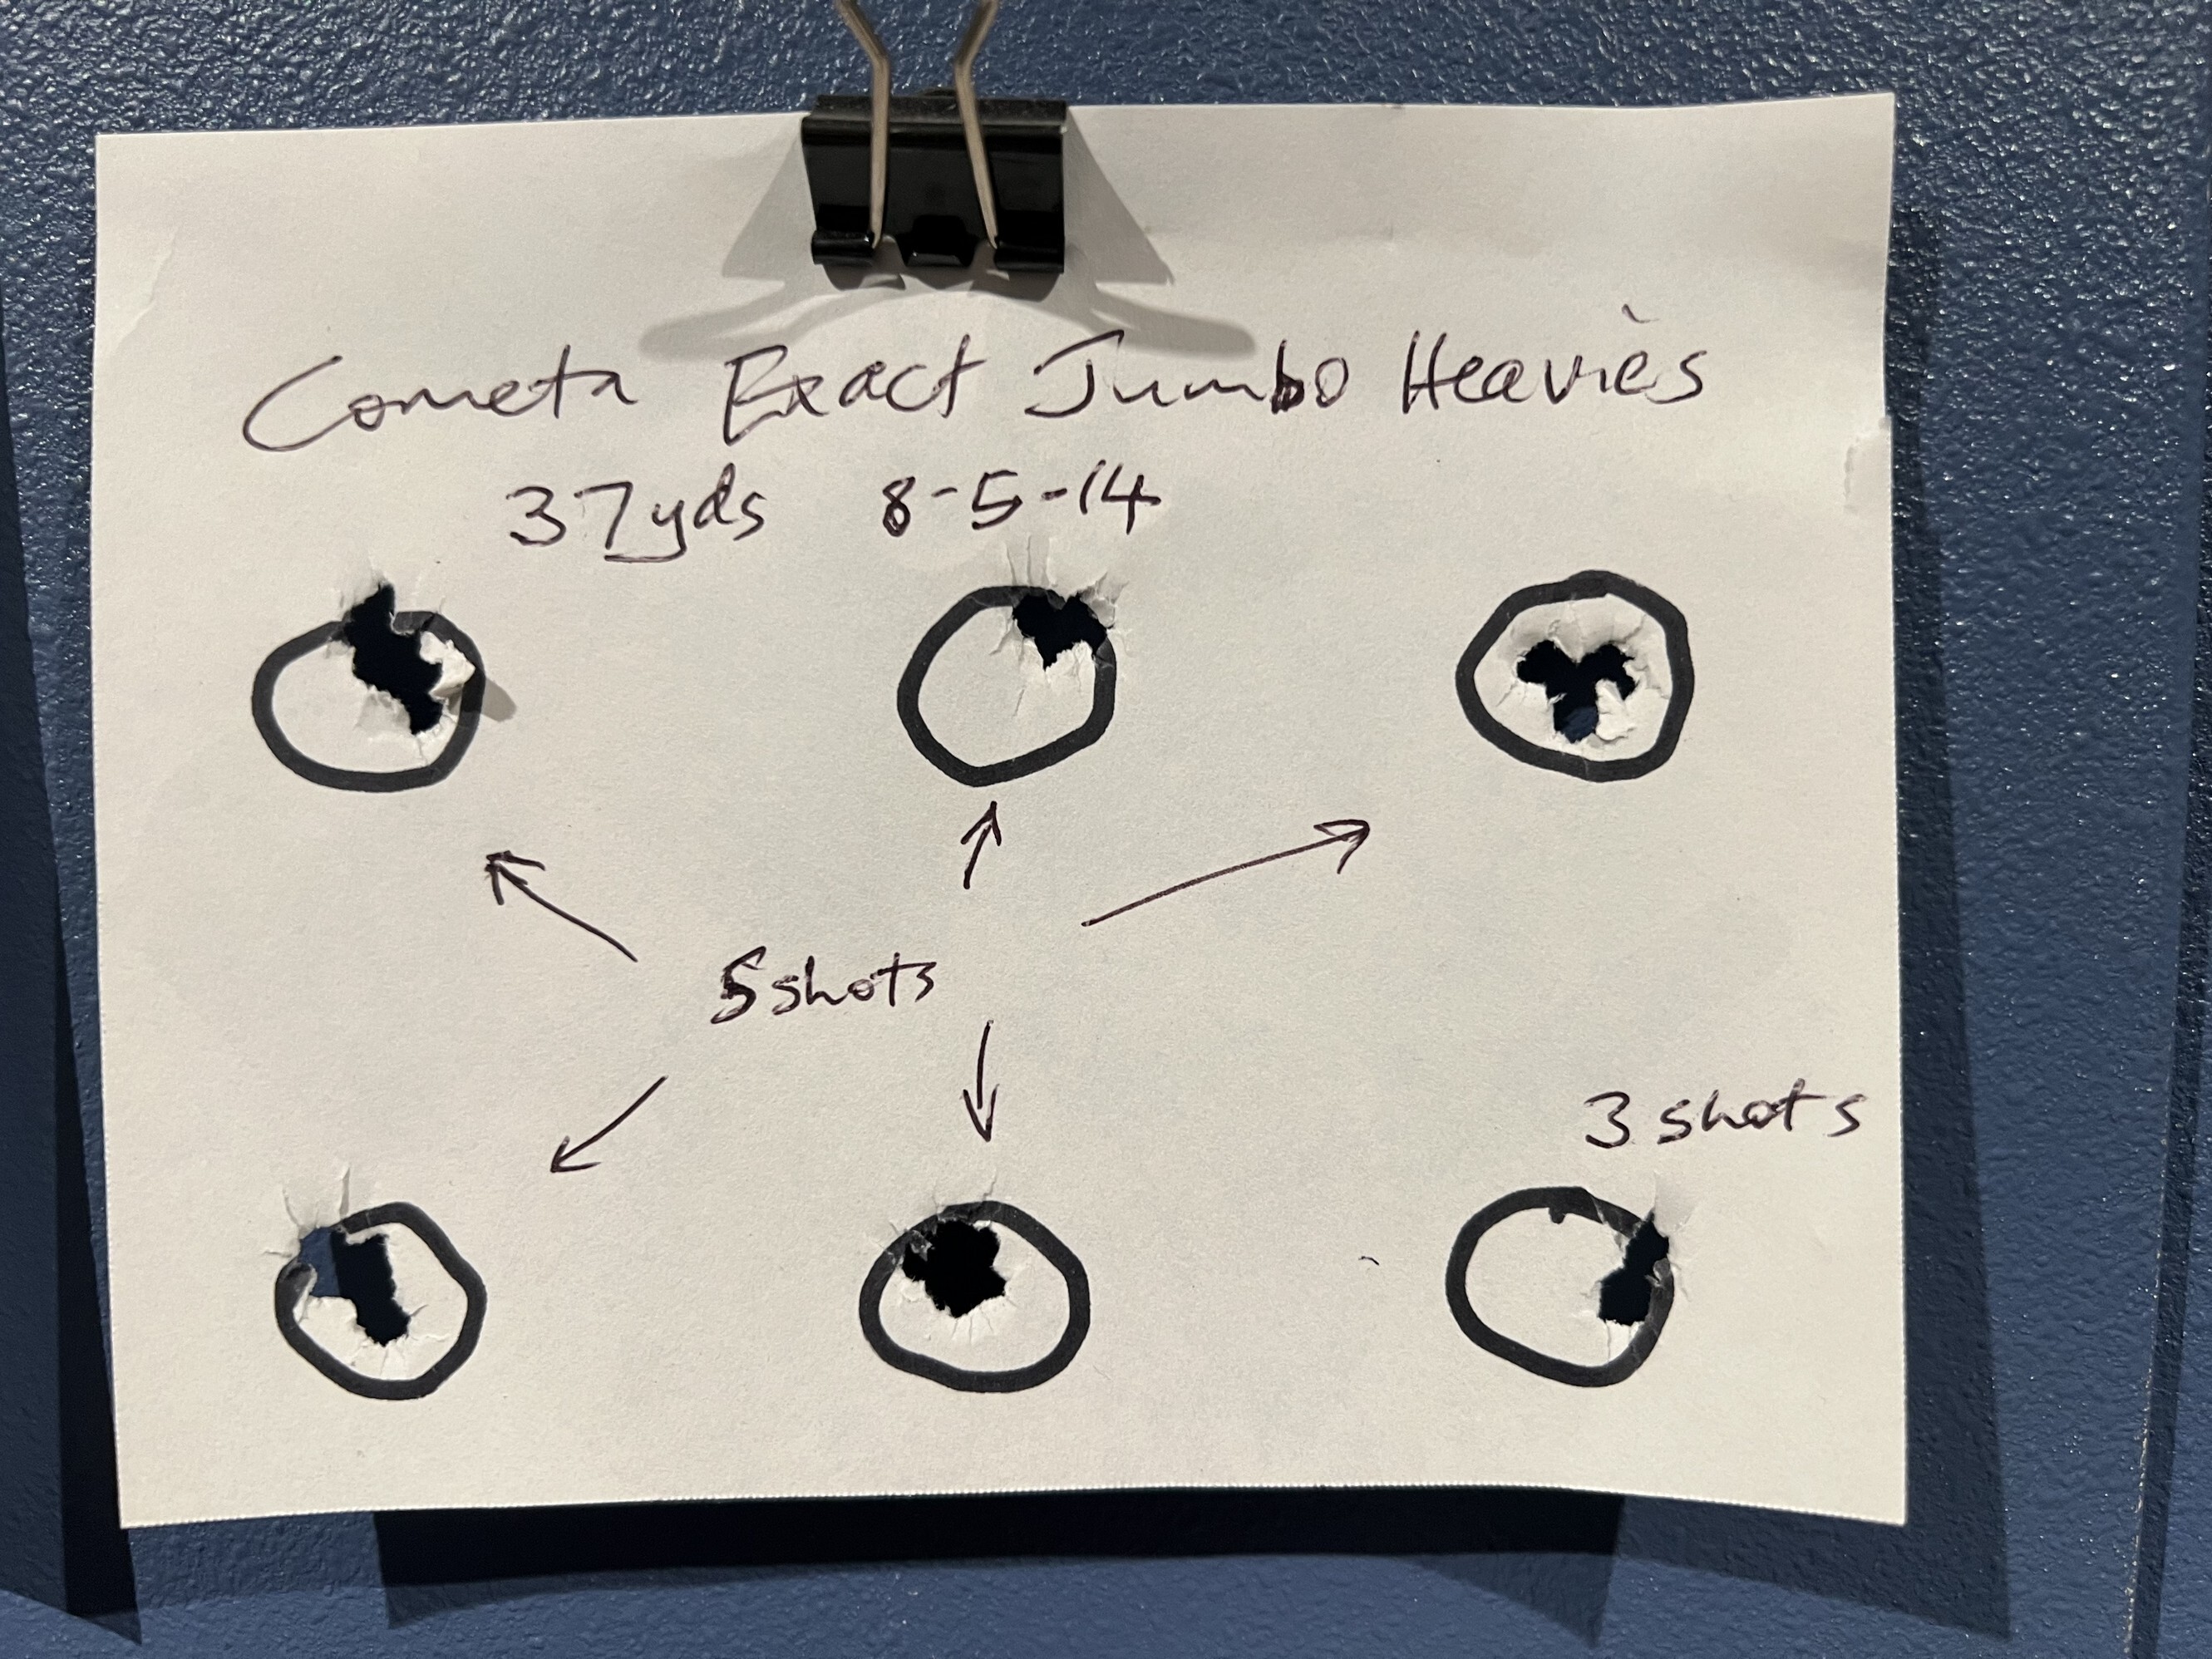 Cometa Exact Jumbo Heavies
37yds 8-5-14
5 shots
3 shots